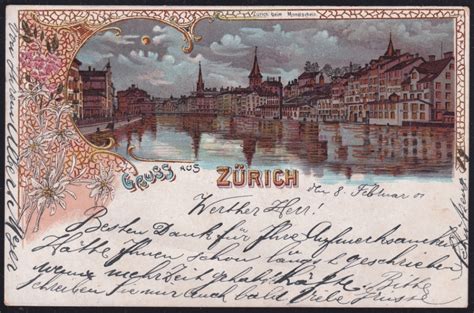 Zürich beim Mondschein.
Gruss aus
ZÜRICH
den 8. Februar 01
Werther Herr!
Besten Dank für Ihre Aufmerksamkeit
Hätte Ihnen schon längst geschrieben
wenn mehr Zeit gehabt hätte. Bitte
schreiben Sie nur auch bald Viele Grüsse